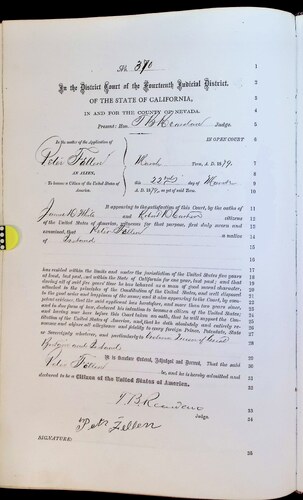 No. 390
In the District Court of the Fourteenth Judicial District.
OF THE STATE OF CALIFORNIA,
IN AND FOR THE COUNTY OF NEVADA.
Present: Hon. T B Reardon Judge.
In the matter of the Application of
IN OPEN COURT
Peter Fallen
March Term, A. D. 1879.
AN ALIEN,
this 22nd day of March
To become a Citizen of the United States of America.
A. D. 1879, as yet of said Term.
It appearing to the satisfaction of this Court, by the oaths of
James K White and Robert citizens
of the United States of America, witnesses for that purpose, first duly sworn and
examined, that Peter Fallen a native
of Ireland
has resided within the limits and under the jurisdiction of the United States five years
at least, last past, and within the State of California for one year, last past; and that
during all of said five years' time he has behaved as a man of good moral character,
attached to the principles of the Constitution of the United States, and well disposed
to the good order and happiness of the same; and it also appearing to the Court, by competent evidence, that the said applicant has heretofore, and more than two years since,
and in due form of law, declared his intention to become a citizen of the United States;
and having now here before this Court taken an oath, that he will support the Constitution of the United States of America, and that he doth absolutely and entirely renounce and abjure all allegiance and fidelity to every foreign Prince, Potentate, State
or Sovereignty whatever, and particularly to Victoria Queen of Great
Britain and Ireland
It is therefore Ordered, Adjudged and Decreed, That the said
Peter Fallen be, and he is hereby admitted and
declared to be a Citizen of the United States of America.
T. B. Reardon
Judge.
Peter Fallen
SIGNATURE:
1
2
3
4
5
6
7
8
9
10
11
12
13
14
15
16
17
18
19
20
21
22
23
24
25
26
27
28
29
30
31
32
33
34
35
36